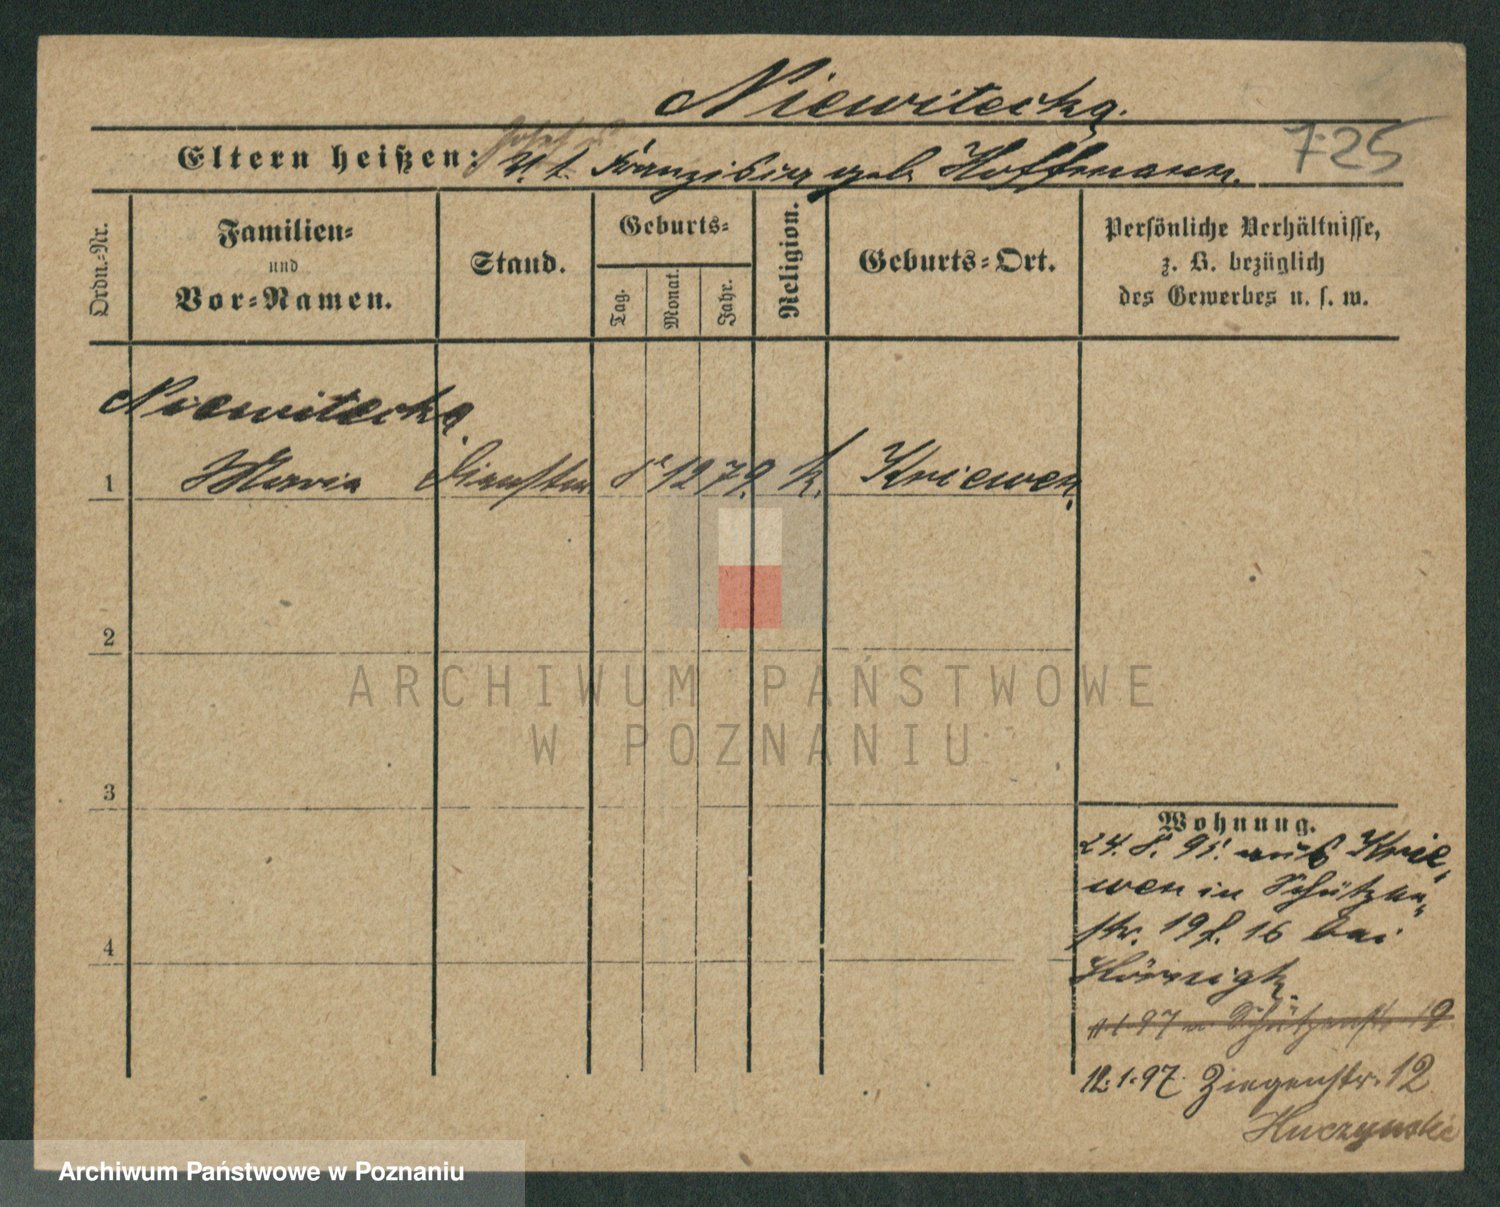 Niewitecka.
725
Eltern heißen: Josef u
Franziska geb. Hoffmann.
Ordn.-Nr.
Familien-
und
Vor-Namen.
Stand.
Geburts-
Tag.
Monat.
Jahr.
Religion.
Geburts-Ort.
Persönliche Verhältnisse,
z. B. bezüglich
des Gewerbes u. s. w.
Niewitecka
1 Maria 8 12 79. k. Kriewen
2
3
4
Wohnung.
24. 8. 95. aus Krie-
wen in Schützen-
str. 19 f. 16 bei
Hörnigk.
97 Schützenstr 19
12.1.97. Ziegenstr. 12
Huczynski
ARCHIWUM PAŃSTWOWE
W POZNANIU
Archiwum Państwowe w Poznaniu